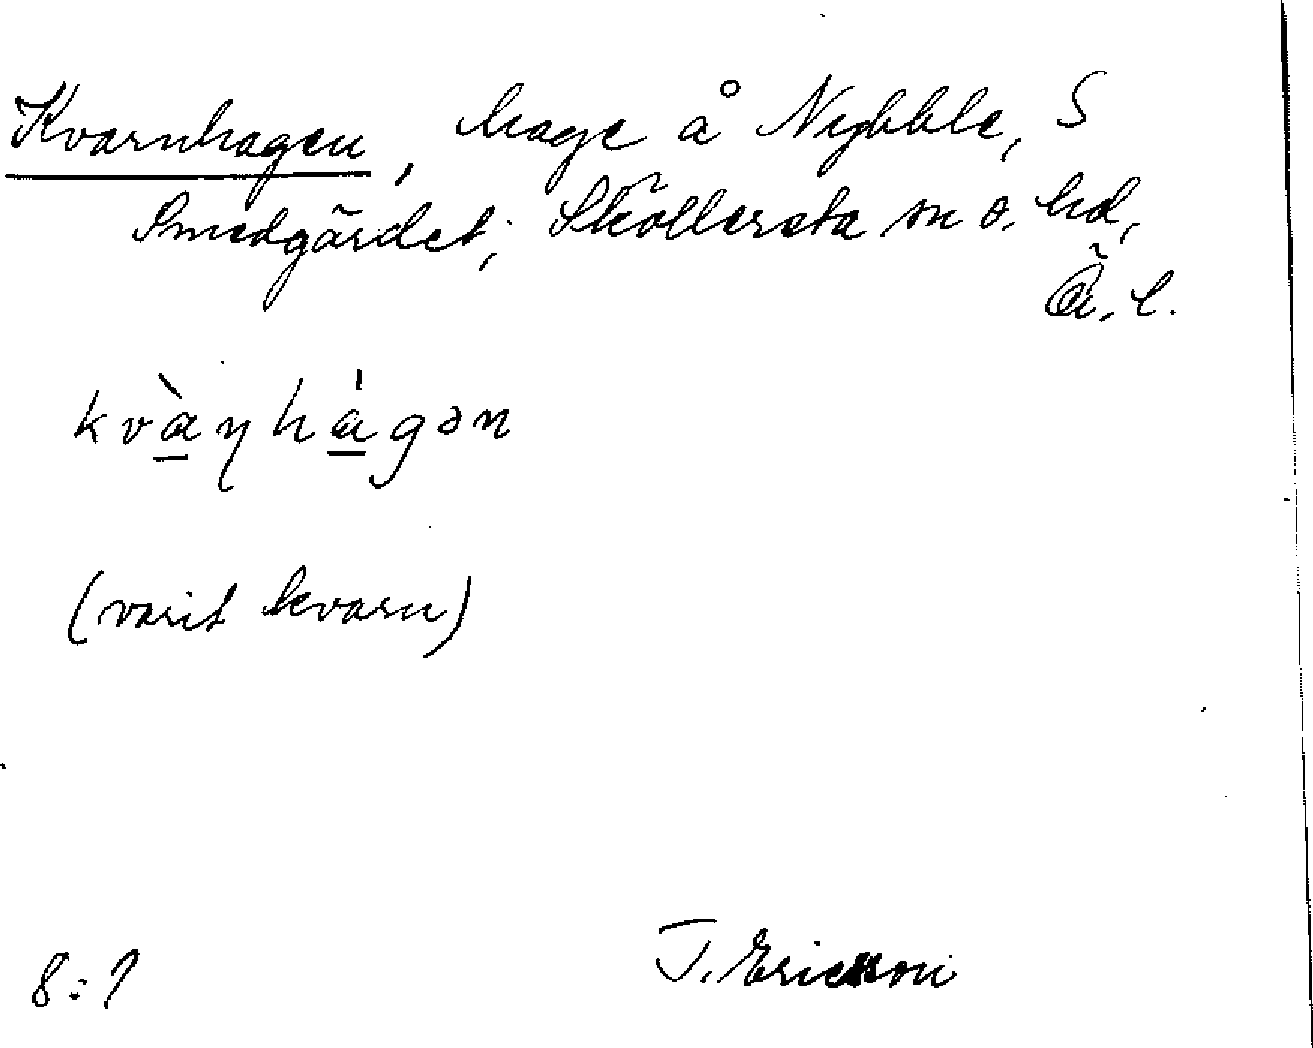 Kvarnhagen, hage å Nybble, S
Smedgärdet; Sköllersta sn o. hd,
Ö. l.
kvàṇhágən
(varit kvarn)
8:7
J. Ericsson